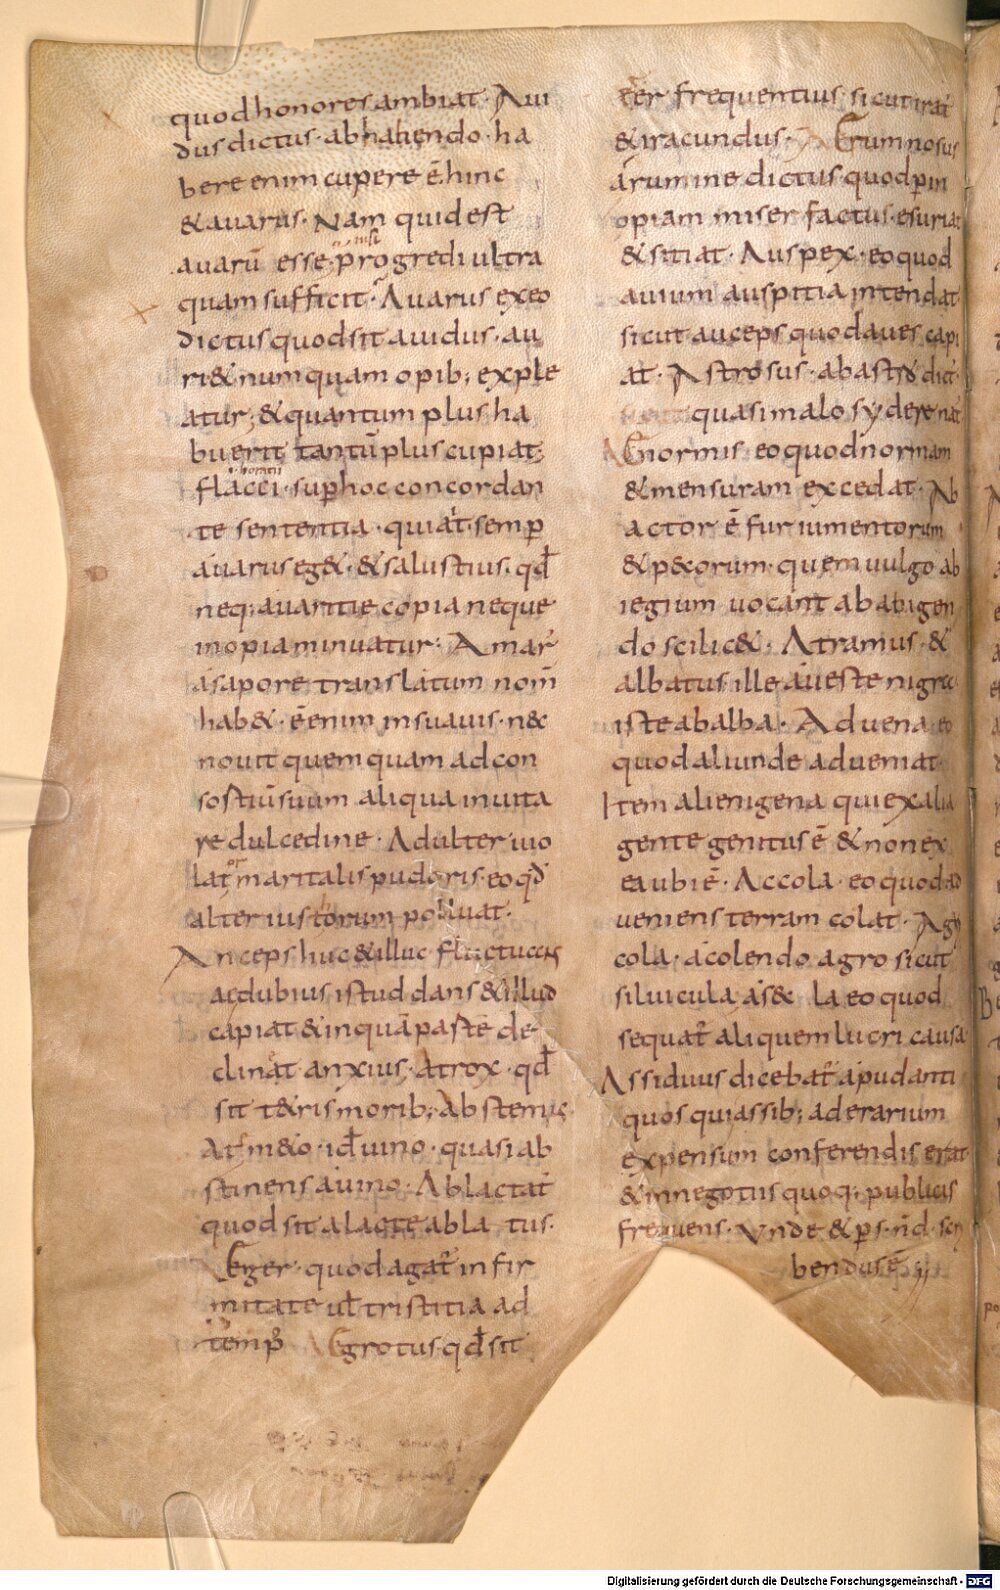 quod honores ambiat· Aui
dus dictus· ab habendo· ha
bere enim cupere ē̄· hinc
& auarus· Nam quid est
nisi
auarū esse· progredi ultra
quam sufficit· Auarus ex eo
dictus quod sit auidus· au
ri & numquam opib; exple
atur; & quantum plus ha
buerit tantū plus cupiat;
horatii
flacci· sup hoc concordan
te sententia· quiat̄· semp
auarus eg&· & salustius· qd̄
neq; auaritie copia neque
inopia minuatur· Amar̄
a sapore translatum nom̄
hab&· ē enim insuauis· nec
nouit quemquam ad con
sortiū suum aliqua inuita
re dulcedine· Adulter uio
lat̄or maritalis pudoris· eo qd̄
alterius torum polluat·
Anceps huc & illuc fluctuans
ac dubius istud dans & illud
capiat & in quā parte de
clinat anxius· Atrox· qd̄
sit t&ris morib; Abstemius
A tem&o· id̄ uino· quasi ab
stinens a uino· Ablactat̄
quod sit a lacte abla tus·
Eger· quod agat̄ infir
mitate ul̄ tristitia ad
temp̄ Egrotus· qd̄ sit
eger frequentius· sicut irat̄
& iracundus· Erumnosus
a rumine dictus· quod p in
opiam miser factus· esuriat
& sitiat· Auspex· eo quod
auium auspitia intendat
sicut auceps quod aues capi
at· Astrosus· ab astro dict̄
quasi malo sydere nat̄
Enormis· eo quod normam
& mensuram excedat· Ab
actor ē fur iumentorum
& pecorum· quem uulgo ab
iegium uocant ab abigen
do scilic&· Atramus· &
albatus· ille a ueste nigra
iste ab alba· Aduena eo
quod aliunde adueniat·
Item alienigena qui ex alia
gente genitus ē & non ex
ea ubi ē· Accola· eo quod ad
ueniens terram colat· Agri
cola· a colendo agro sicut
siluicula· as& la eo quod
sequat̄ aliquem lucri causa
Assiduus dicebat̄ apud anti
quos qui assib; ad erarium
expensum conferendis erat
& in negotiis quoq; publicis
frequens· Unde & p s· n̄ d· scri
bendus ē;
Digitalisierung gefördert durch die Deutsche Forschungsgemeinschaft - DFG